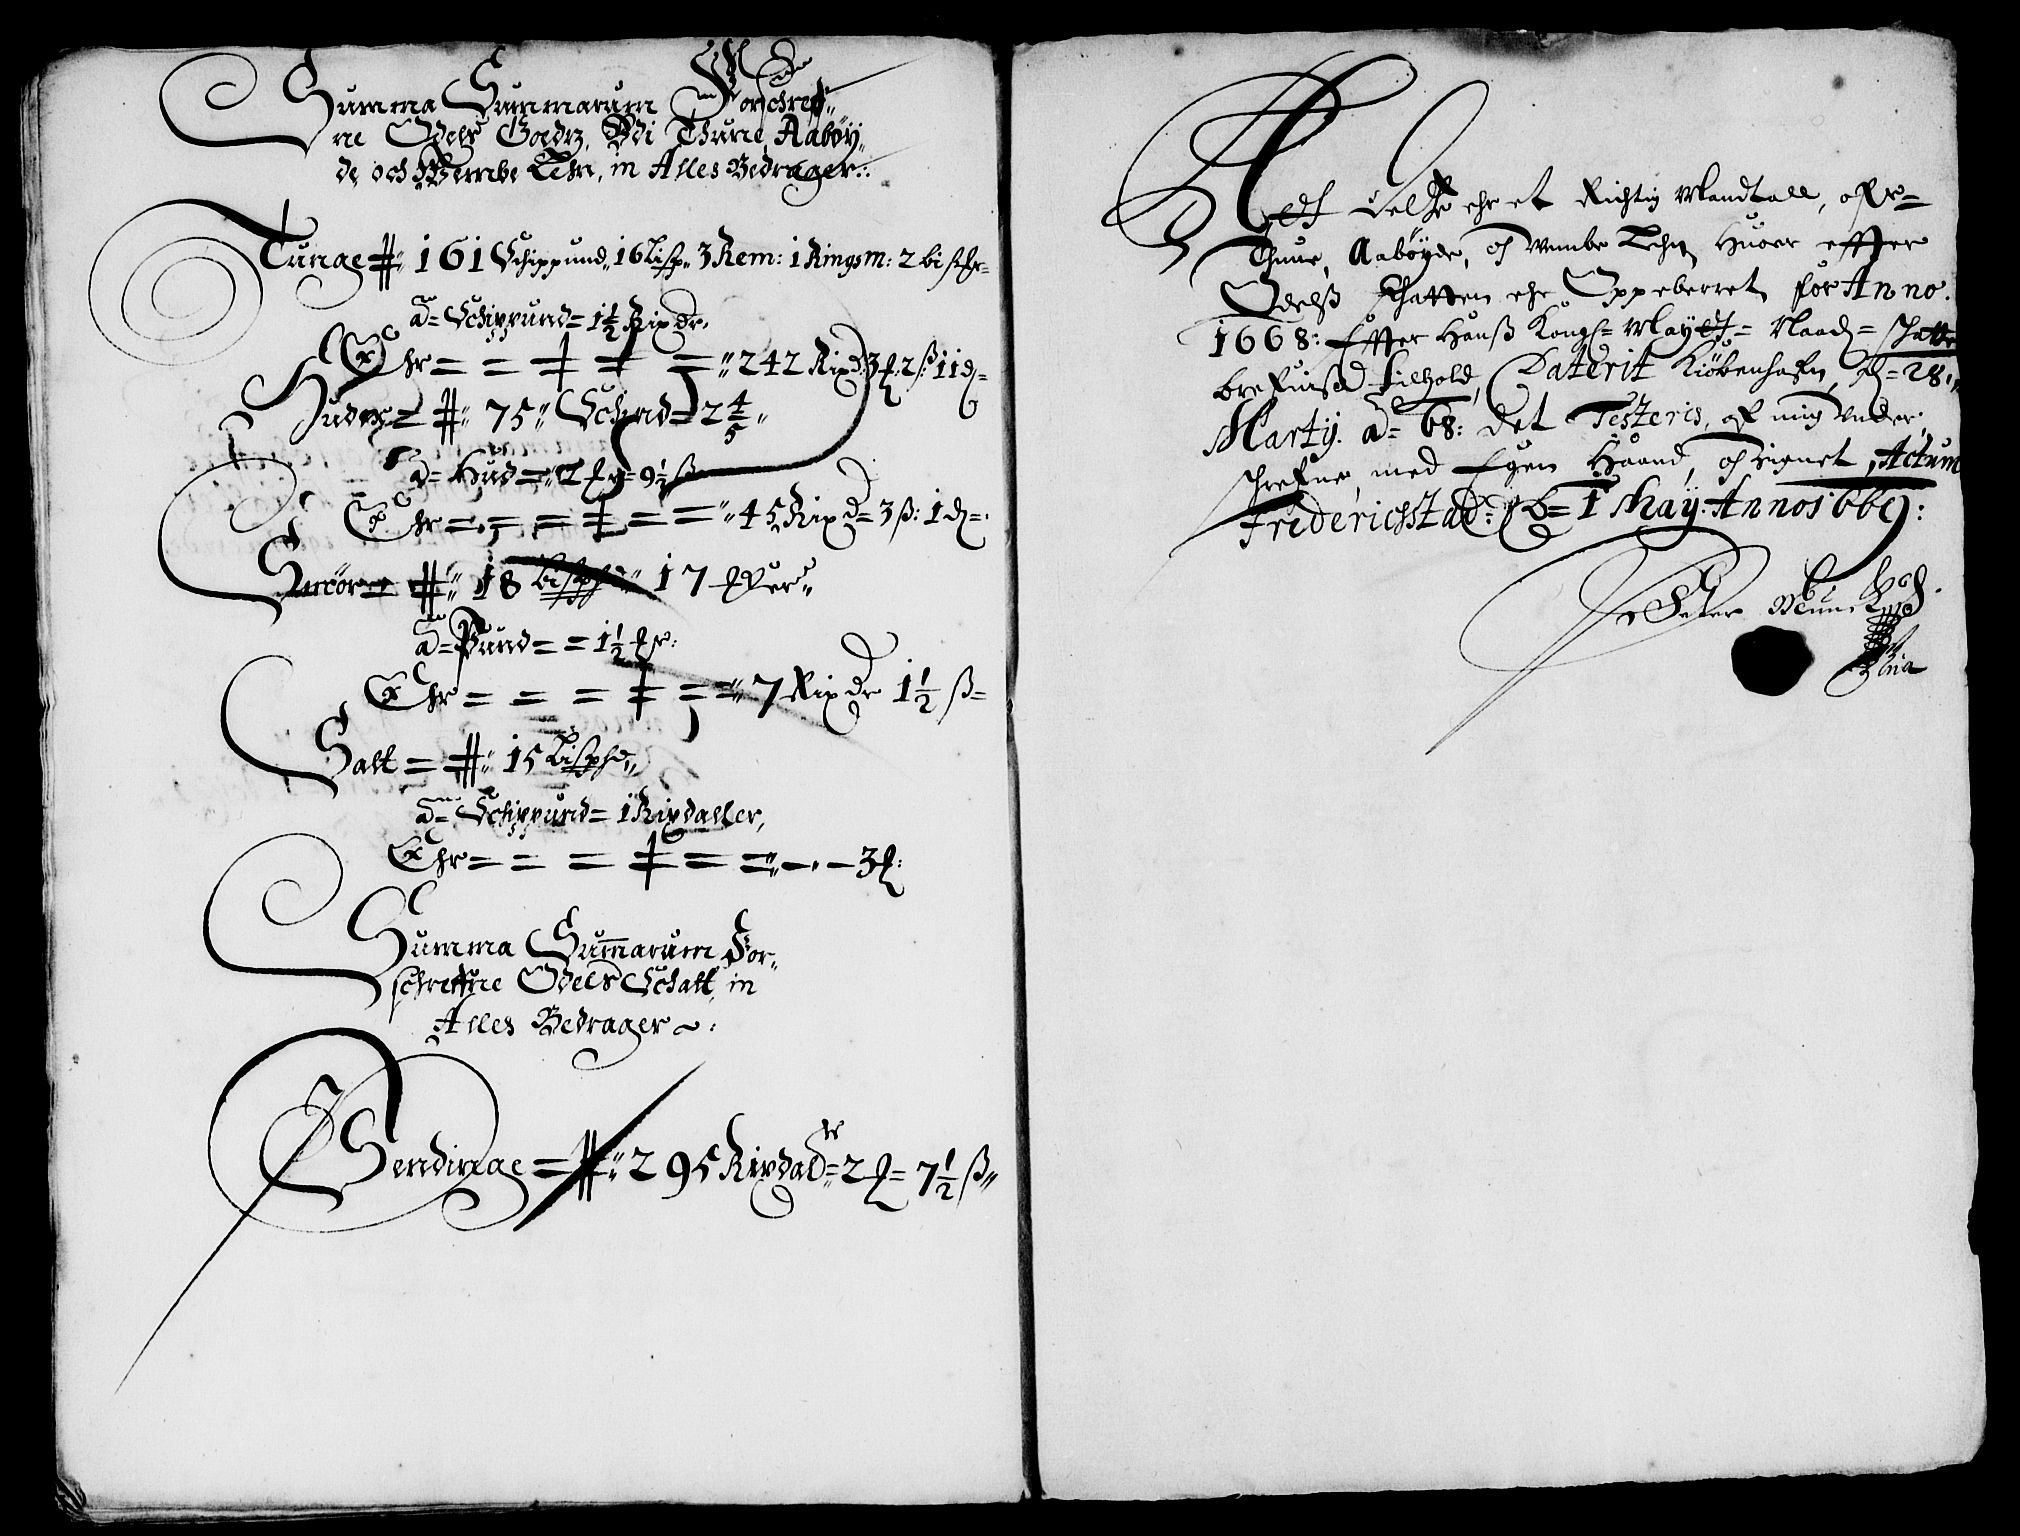 Summa Summarum Forschreff„
ne Odels Goedtz, Udi Thune, Aabøy„
de, och Wembe Lehn, in Alles Bedrager:.
Tunge = 161 Schippund„ 16 Lisp„ 3 Rem: 1 Ringsm: 2 bissch=
à= Schippund= 1½ Rixdr.
Ehr = = = = = „242 Rixd: 3 ℔: 2 ß: 11 d=
Huder = 75„ Schind= 2 4/5„
à= Hud= „2 ℔= 9½ ß
Ehr = = = = = „45 Rixd= 3 ß: 1 d=
Smör = „18 bisphd„ 17 ver„
à= Pund= = 1½ :
Ehr = = = = = „7 Rixdr 1½ ß=
Salt = = „15 Lisphd„
à= Schippund= 1 Rixdaller,
Ehr = = = = = = „ - . - 3 ℔:
Summa Summarum For„
schreffne Odels Schatt, in
Alles Bedrager :
Pendinge = „295 Rixdal= 2 ℔= 7½ ß„
At dette ehr et Richtig Mandtall, ofr=
Thune, Aabøyde, och Wembe Lehn, Huor effter
Odelß Schatten ehr Oppeberret for Anno.
1668: Effter Hanß Kongl= Mayts= Naad= schatte
brefuiß= Jnhold, Daterit Kiøbenhafn, d= 28„
Marty. a= 68: det Testeris, af mig under„
schrefne, med Egen Haand, och Signet, Actum
Friderichstad: d= 1 May: Anno 1669:
Peter